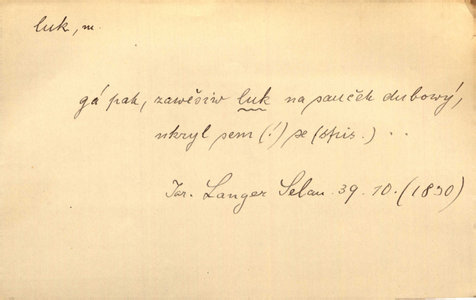 luk, m.
gá pak, zawěsiw luk na sauček dubowý,
ukryl sem (!) se (spis.) ..
Jar. Langer Selan. 39. 10. (1830)